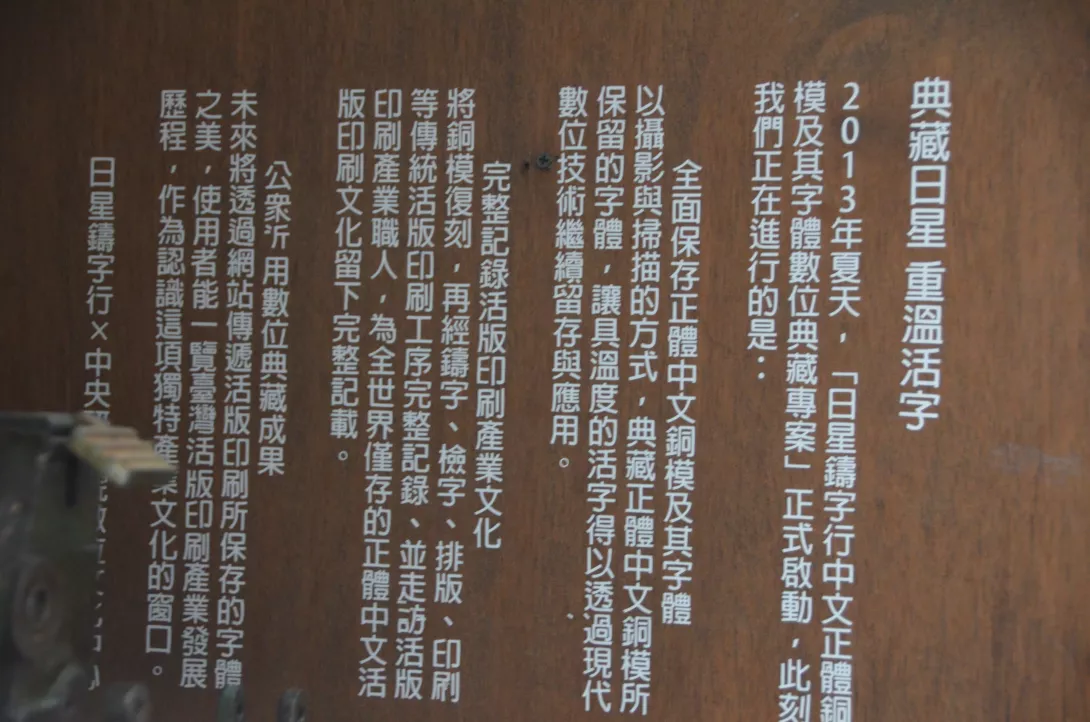 典藏日星 重溫活字
2013年夏天，「日星鑄字行中文正體銅
模及其字體數位典藏專案」正式啟動，此刻
我們正在進行的是：
全面保存正體中文銅模及其字體
以攝影與掃描的方式，典藏正體中文銅模所
保留的字體，讓具溫度的活字得以透過現代
數位技術繼續留存與應用。
完整記錄活版印刷產業文化
將銅模復刻，再經鑄字、檢字、排版、印刷
等傳統活版印刷工序完整記錄、並走訪活版
印刷產業職人，為全世界僅存的正體中文活
版印刷文化留下完整記載。
公眾沂用數位典藏成果
未來將透過網站傳遞活版印刷所保存的字體
之美，使用者能一覽臺灣活版印刷產業發展
歷程，作為認識這項獨特產業文化的窗口。
日星鑄字行×中央